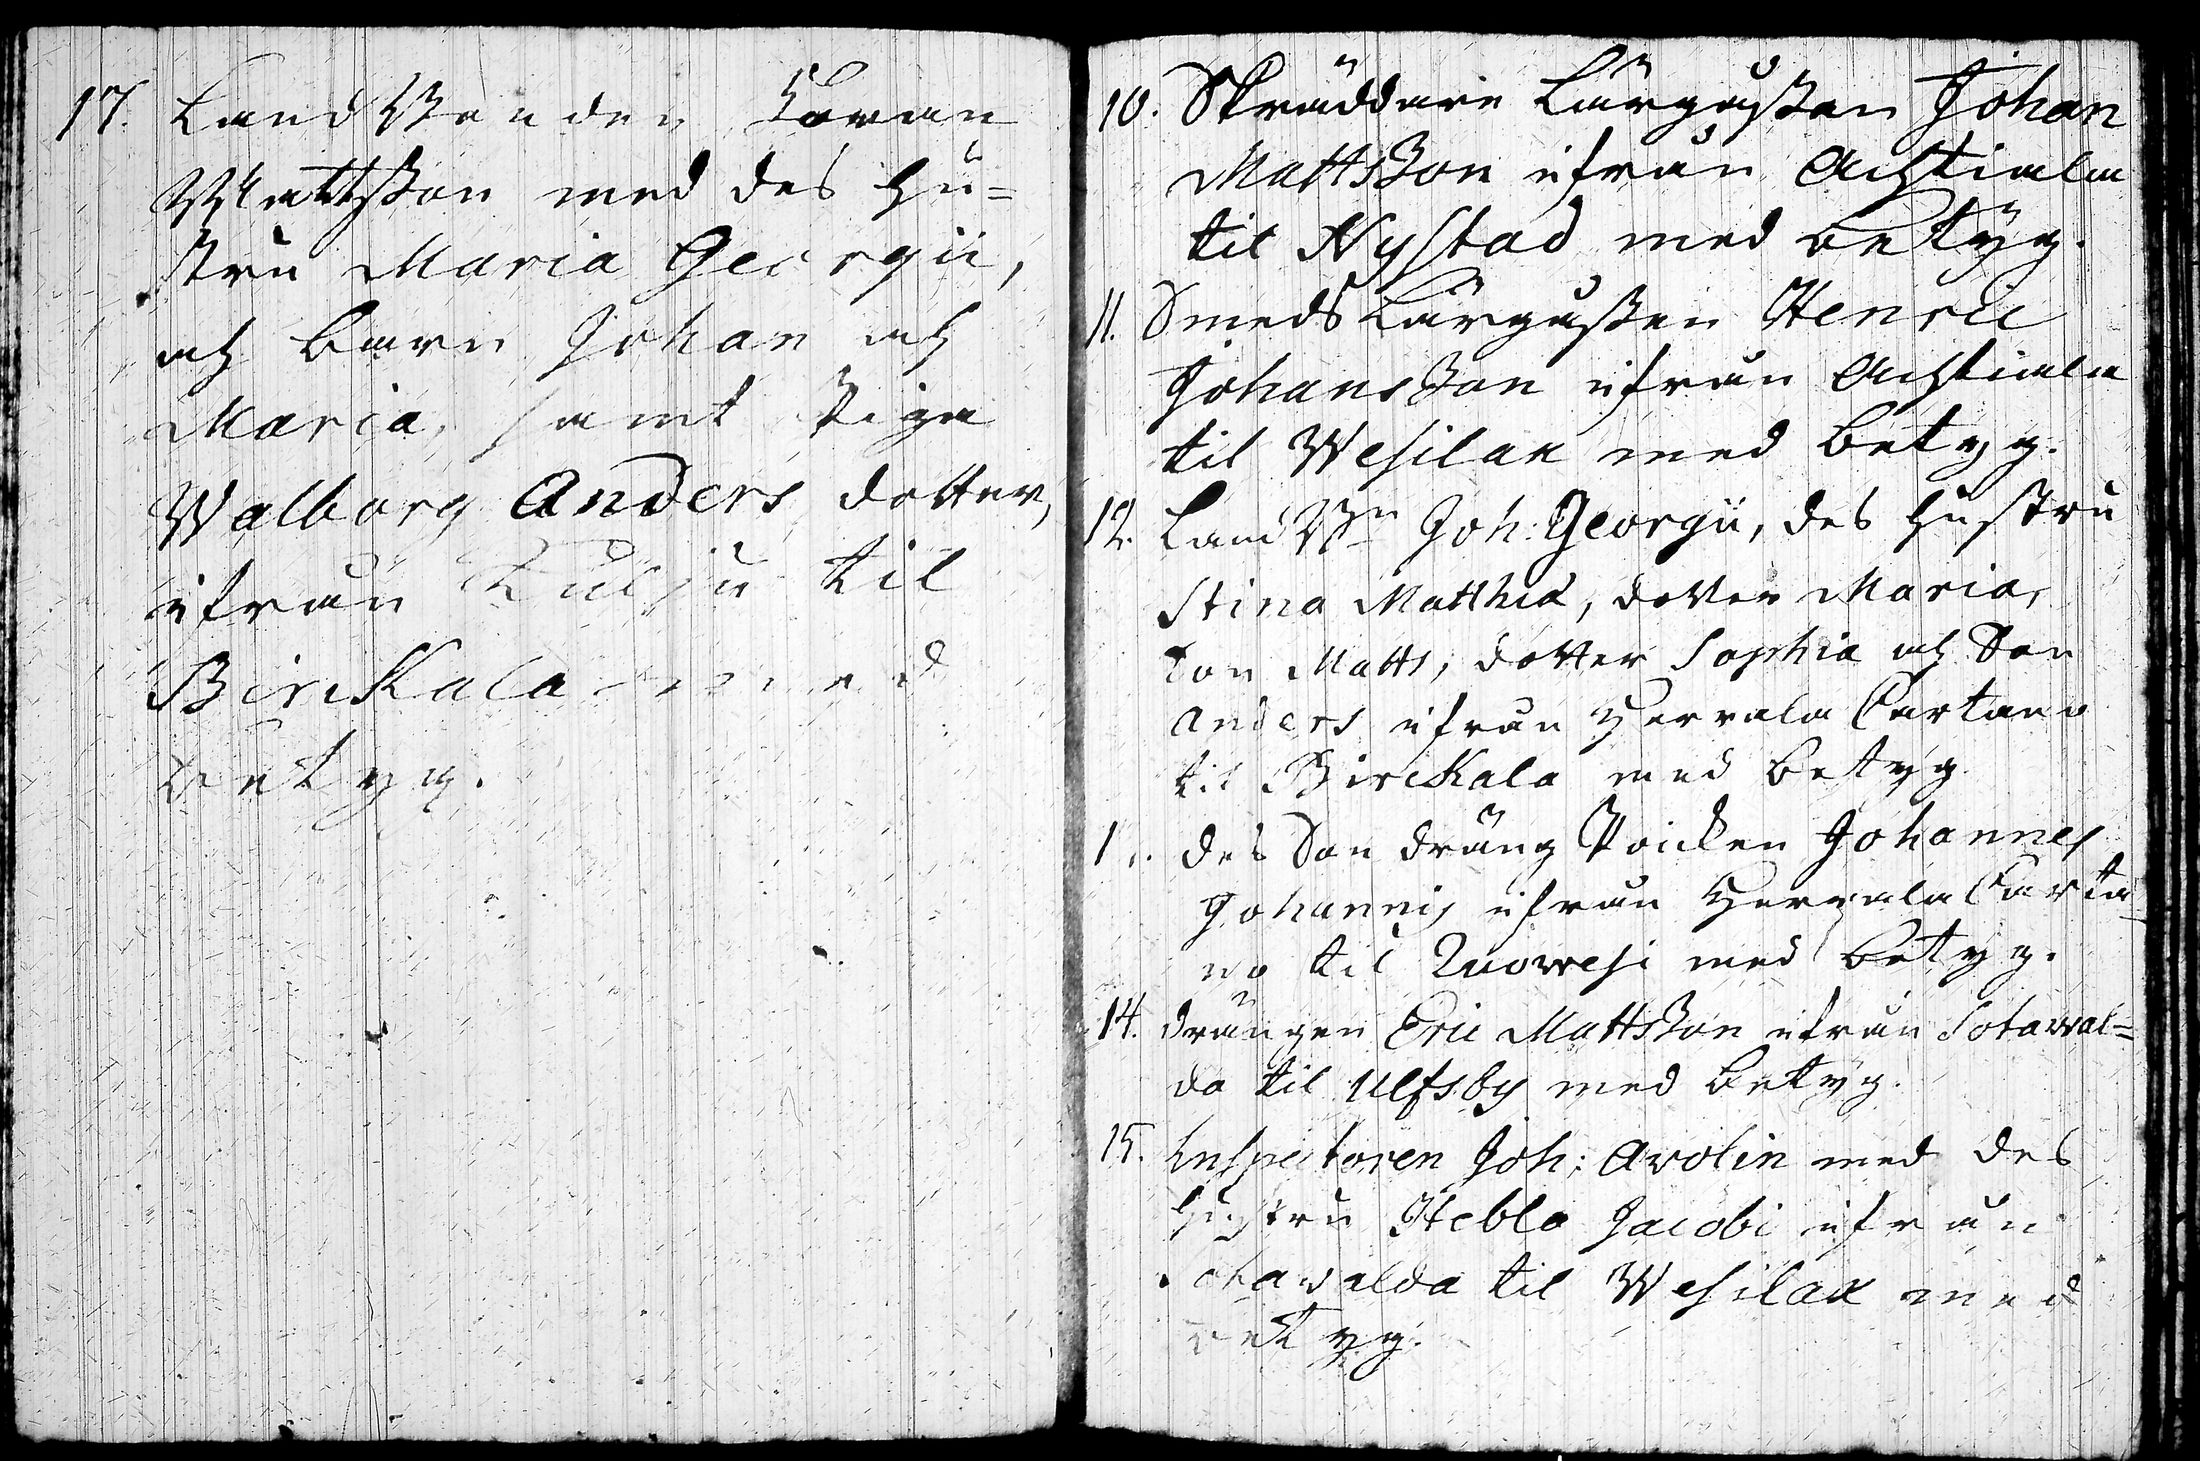 17. Landbonden Göran
Mattsson med des Hu=
stru Maria Georgii,
och barn Johan och
Maria, samt Piga
Walborg Anders dotter,
ifrån Kulju til
BircKala med
betyg.
10. Skräddare Lärgåssen Johan
Mattsson ifrån Achtiala
til Nystad med betyg.
11. Smeds Lärgåssen Henric
Johansson ifrån Achtiala
til Wesilax med betyg.
12. Land Bn Joh: Georgii, des Hustru
Stina Matthiæ, dotter Maria,
Son Matts, dotter Sophia och Son
Anders ifrån Herrala Cartano
til BircKala med betyg
des Son dräng Poicken Johannes
Johannis ifrån Herrala Carta
no til Ruowesi med betyg.
14. drängen Eric Mattsson ifrån Sotawal=
da til Ulfsby med betyg.
15. Inspectoren Joh: Arolin med des
Hustru Hebla Jacobi ifrån
Sotawalda til Wesilax med
betyg.